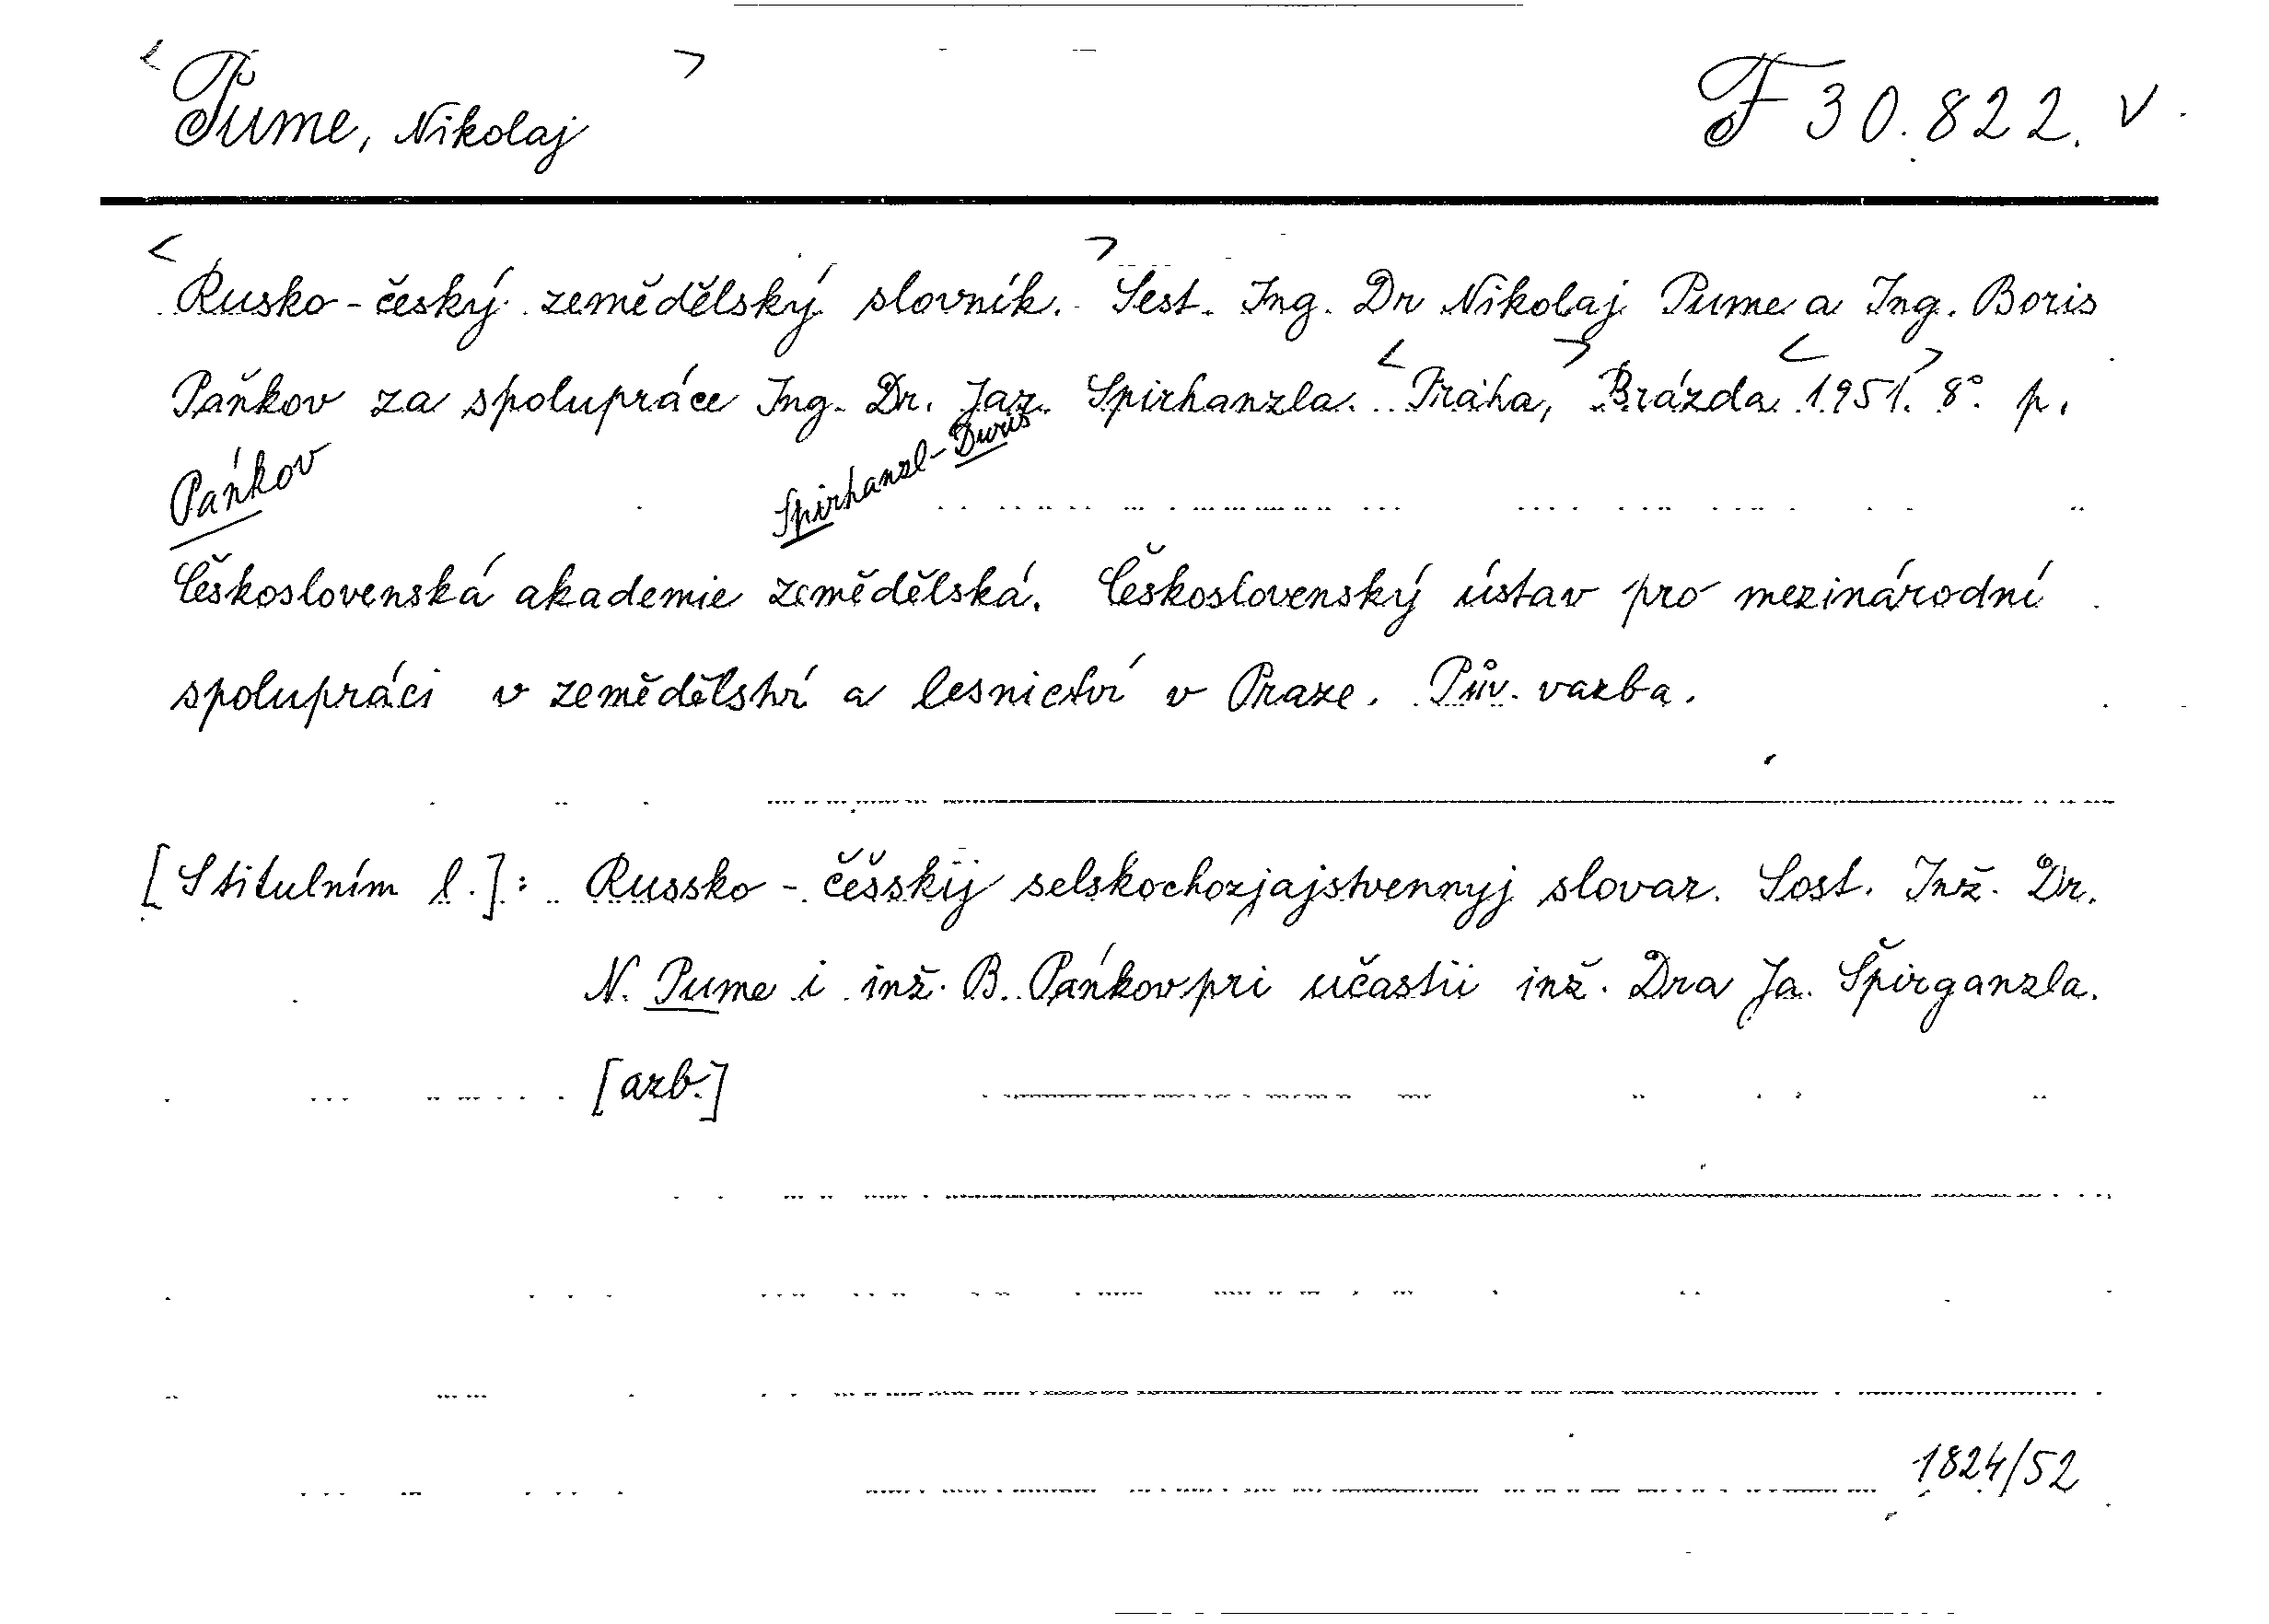 <Pume, Nikolaj> F 30.822. V.
<Rusko-český zemědělský slovník.> Sest. Ing. Dr Nikolaj Pume a Ing. Boris
Paňkov za spolupráce Ing. Dr. Jar. Spirhanzla. <Praha,> Brázda <1951.> 8°. p.
Pańkov Spirhanzl-Duriš
Československá akademie zemědělská. Československý ústav pro mezinárodní
spolupráci v zemědělství a lesnictví v Praze. Pův. vazba.
[S titulním l.]: Russko-češskij selskochozjajstvennyj slovar. Sost. Inž. Dr.
N. Pume i inž. B. Pańkov pri učastii inž. Dra Ja. Špirganzla.
[azb.]
1824/52